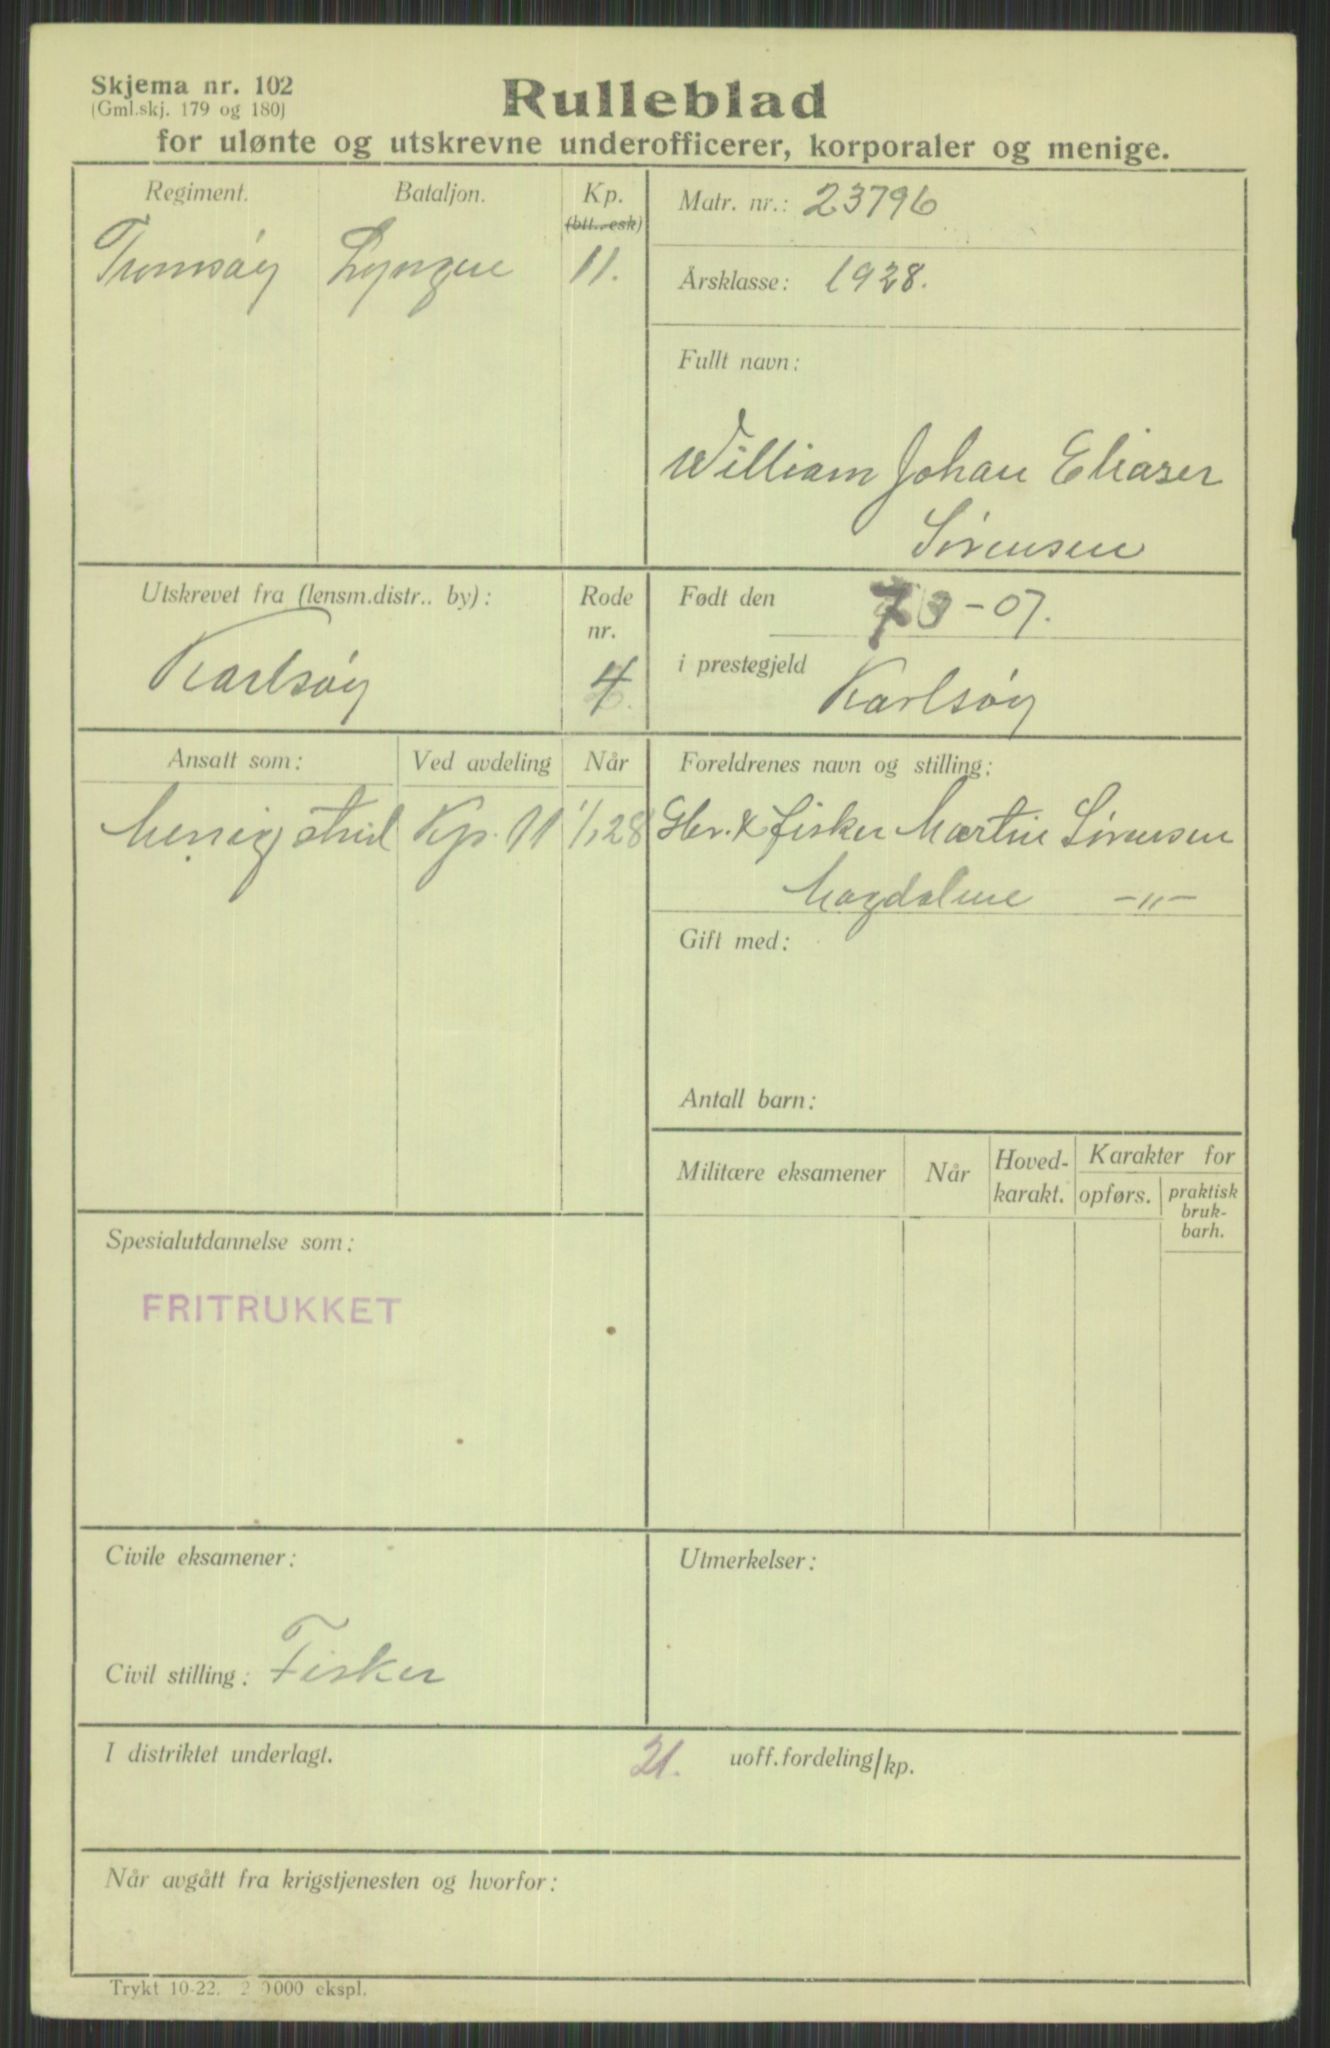 Skjema nr. 102
(Gml.skj. 179 og 180)
Rulleblad
for ulønte og utskrevne underofficerer, korporaler og menige.
Regiment.
Tromsøy
Bataljon.
Lyngen
Kp.
(btt., esk)
11.
Matr. nr.: 23796
Årsklasse: 1928.
Fullt navn:
William Johan Eliaser
Sørensen
Utskrevet fra (lensm.distr.. by):
Karlsøy
Rode
nr.
4
Født den -07.
i prestegjeld Karlsøy
Ansatt som:
Menig strid
Ved avdeling
Kp. 11
Når
1/1 28
Foreldrenes navn og stilling:
Gbr. & fisker Martin Sørensen
Magdalene -"-
Gift med:
Antall barn:
Militære eksamener
Når
Hoved-
karakt.
Karakter for
opførs.
praktisk
bruk-
barh.
Spesialutdannelse som:
FRITRUKKET
Civile eksamener:
Civil stilling: Fisker
Utmerkelser:
I distriktet underlagt. 21. uoff.fordeling/kp.
Når avgått fra krigstjenesten og hvorfor:
Trykt 10-22. 000 ekspl.